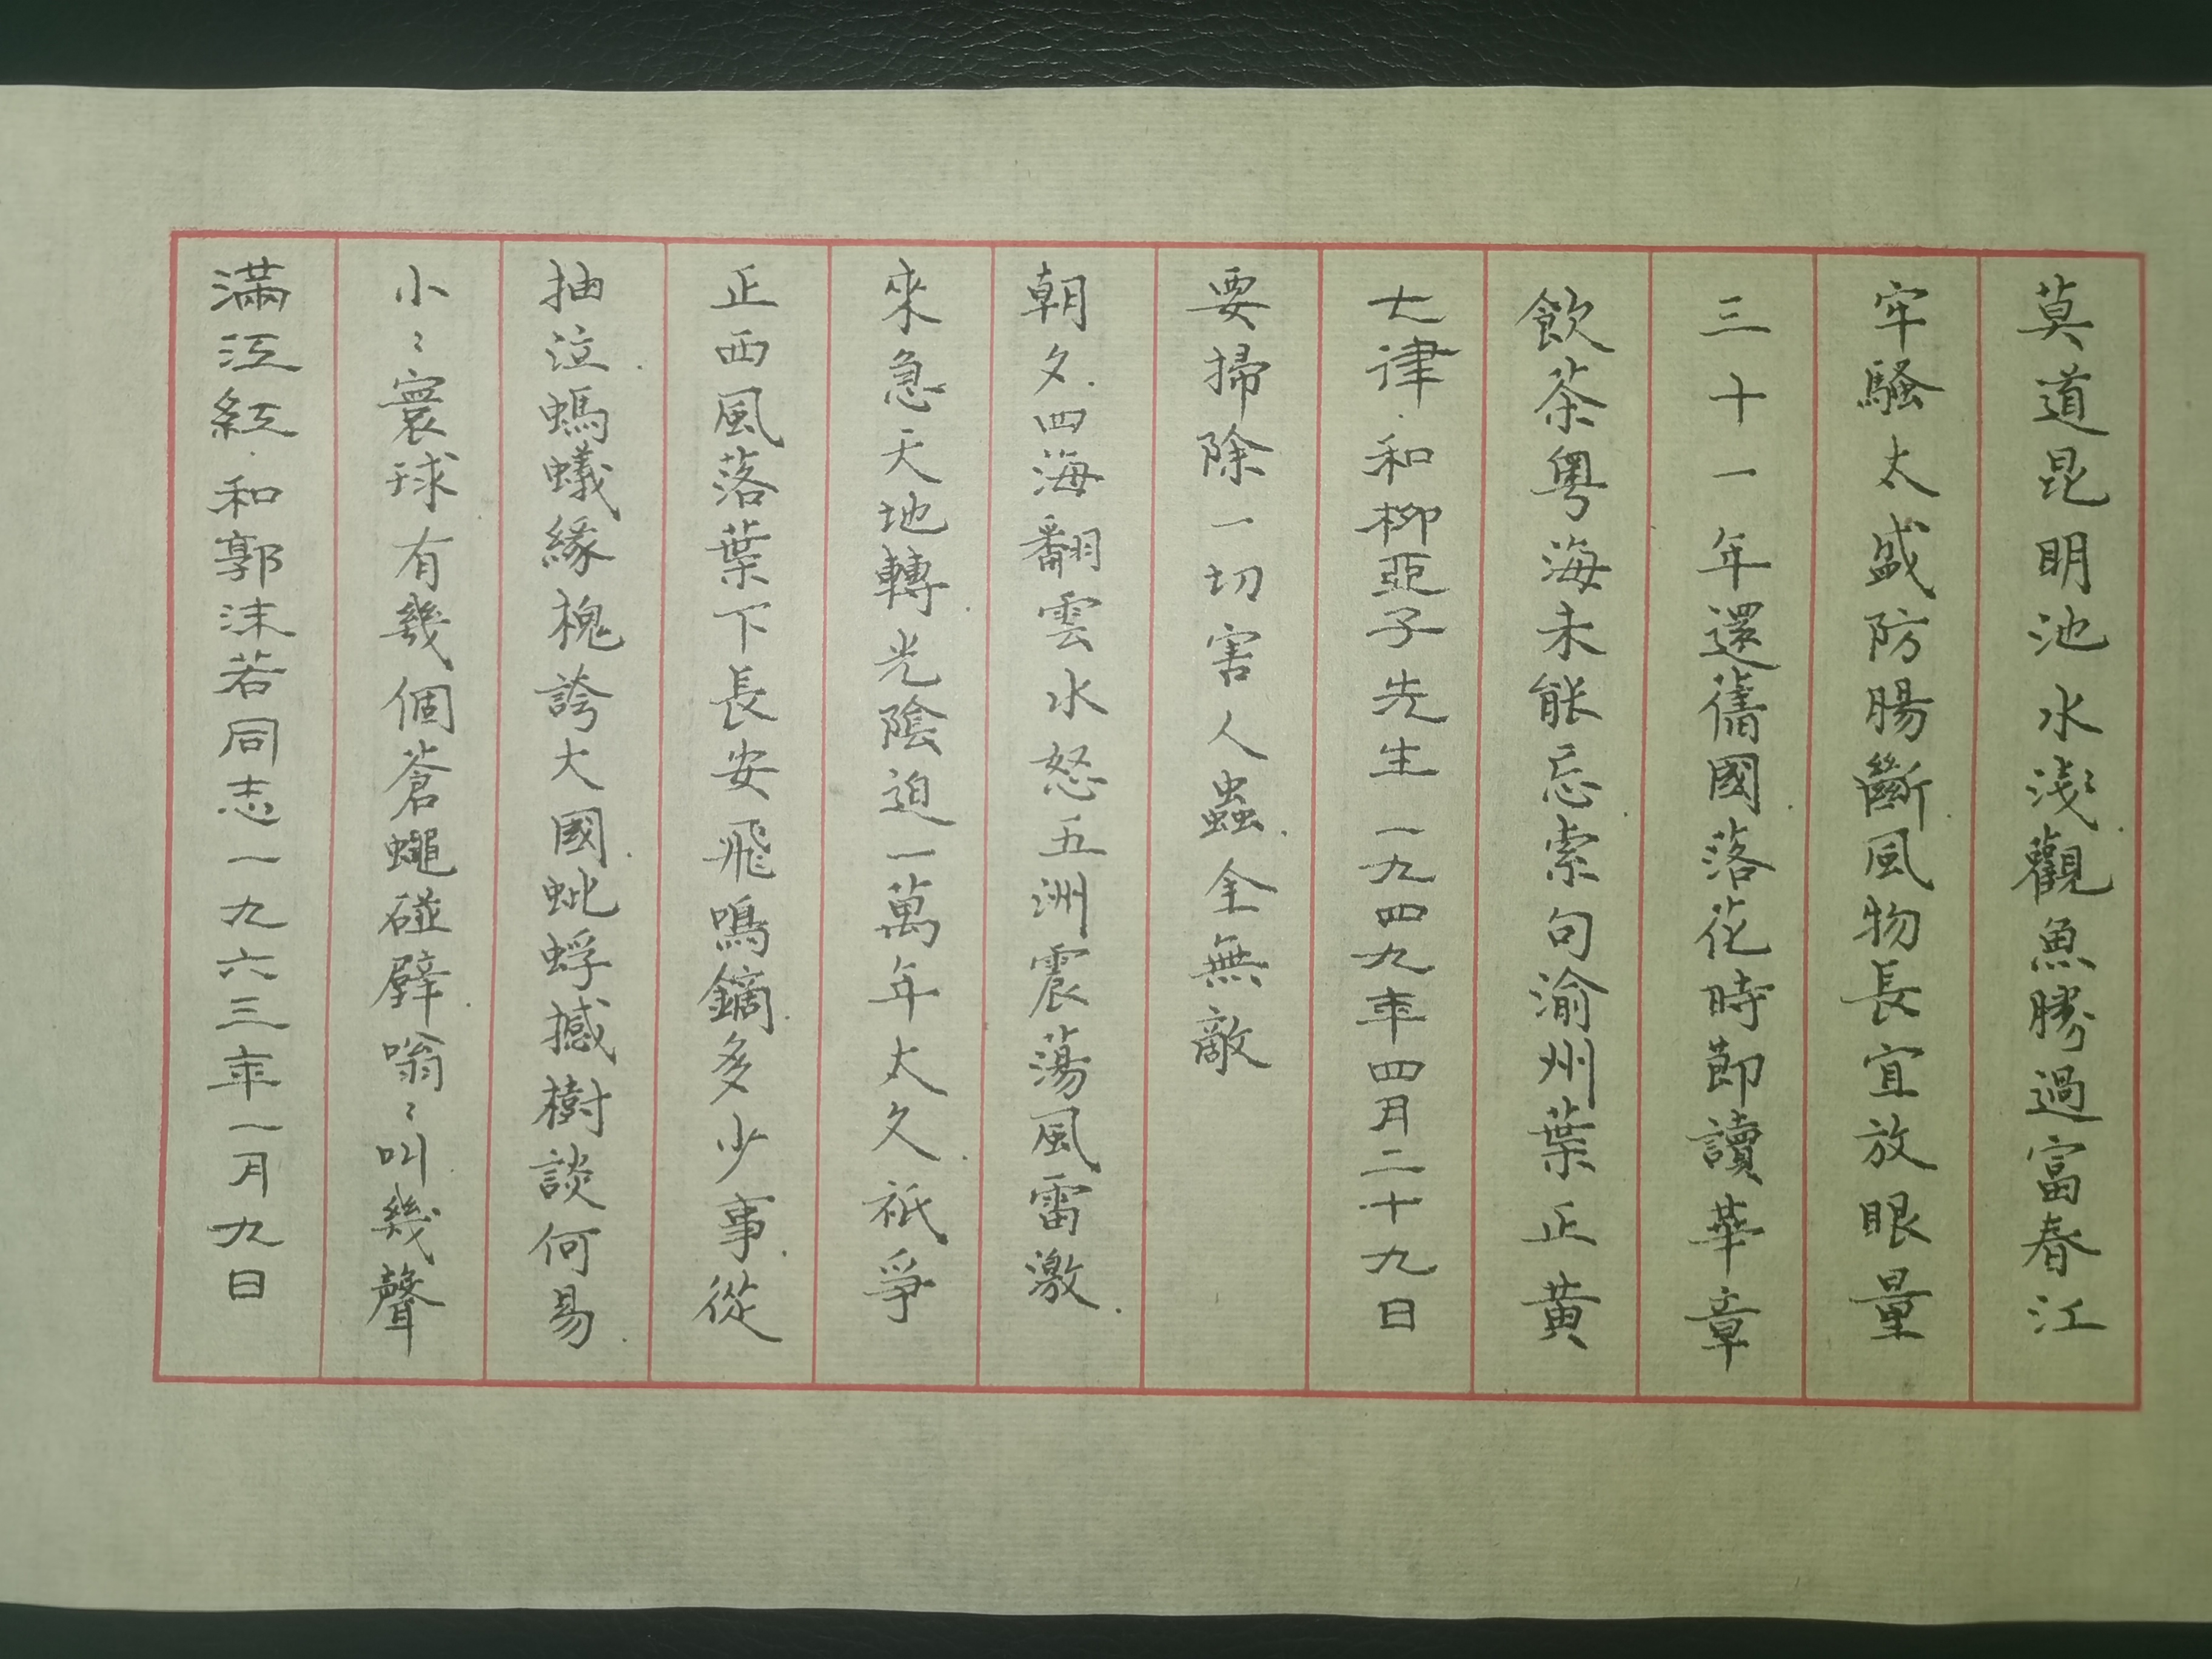 滿江紅·和郭沫若同志一九六三年一月九日
小〻寰球.有幾個蒼蠅碰壁.嗡〻叫.幾聲
抽泣.螞蟻緣槐誇大國.蚍蜉撼樹談何易.
正西風落葉下長安飛鳴鏑.多少事.從
來急天地轉.光陰迫一萬年太久.祇爭
朝夕.四海翻雲水怒五洲震蕩風雷激.
要掃除一切害人蟲.全無敵
七律·和柳亞子先生一九四九年四月二十九日
飲茶粵海未能忘索句渝州葉正黃
三十一年還舊國.落花時節讀華章
牢騷太盛防腸斷風物長宜放眼量
莫道昆明池水淺.觀魚勝過富春江